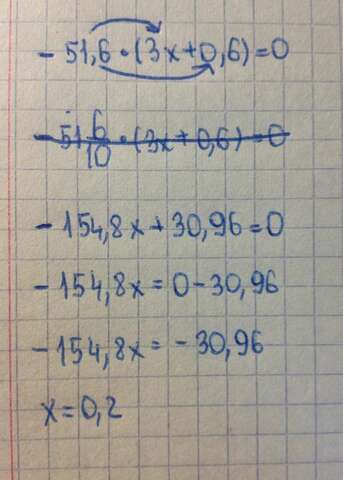 - 51,6 · (3x+0,6)=0
- 51 6/10 · (3x+0,6)=0
- 154,8x + 30,96=0
- 154,8x = 0-30,96
- 154,8x = - 30,96
x=0,2